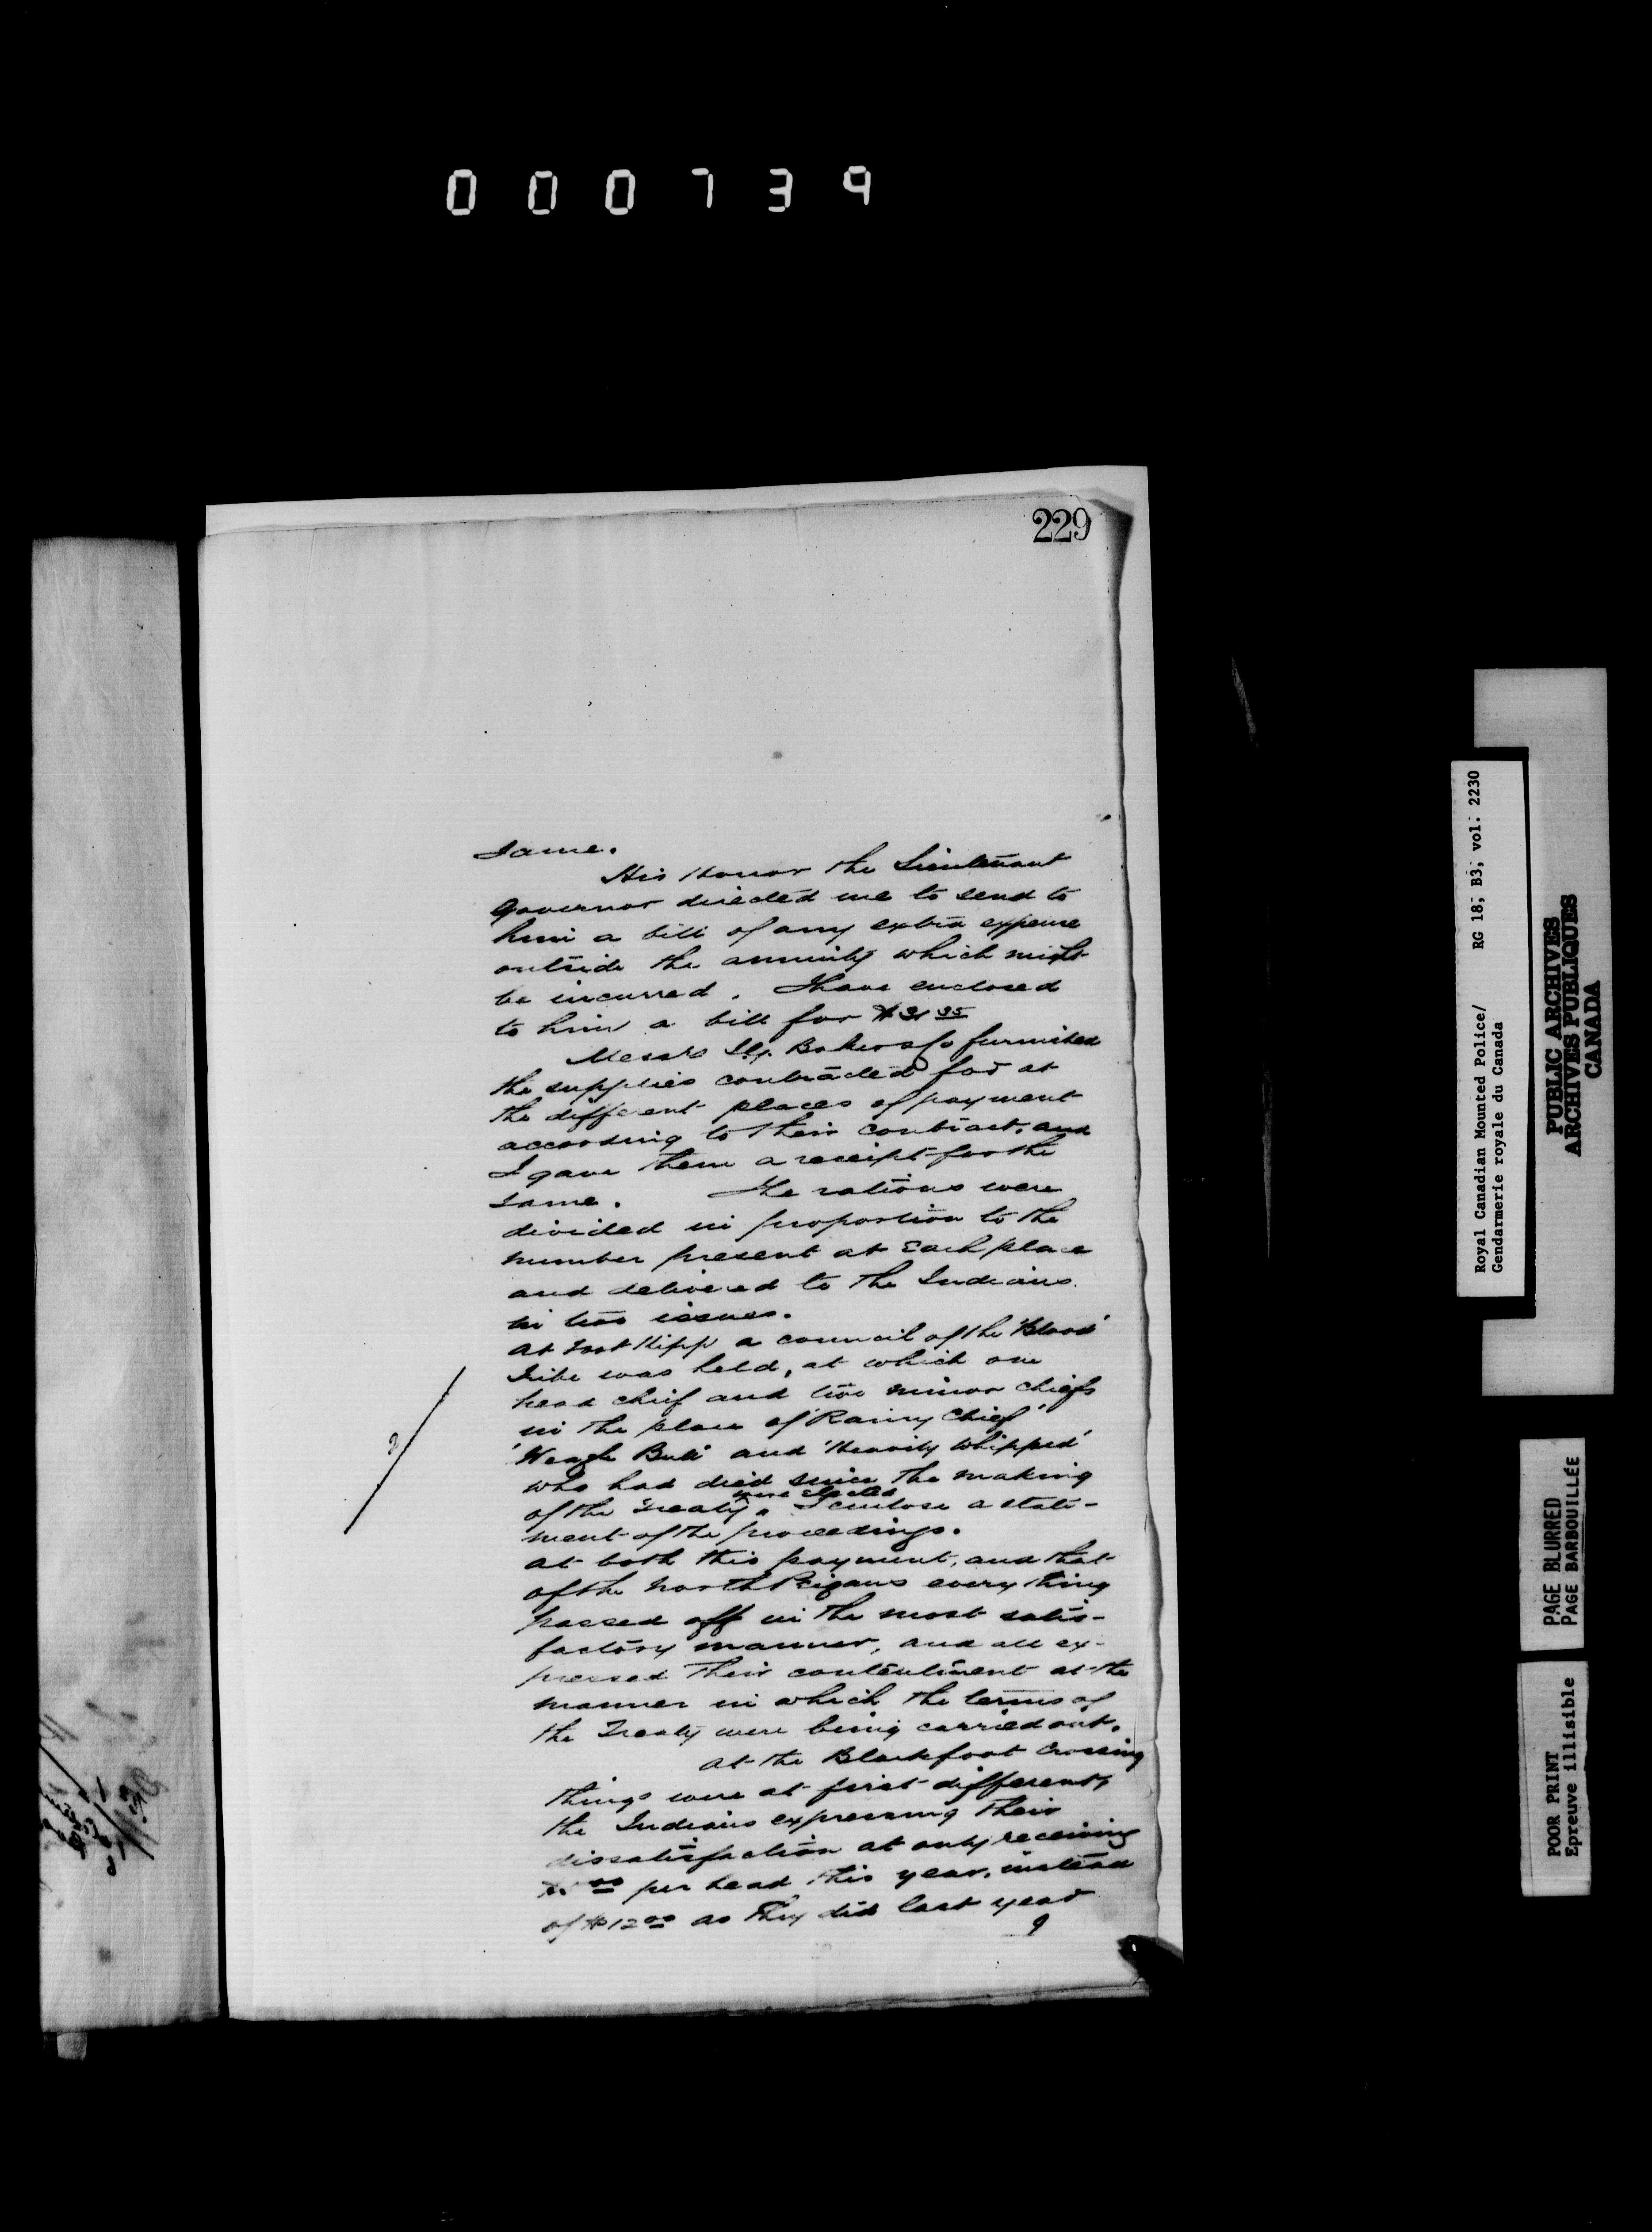 000739
229
same.
His Honor the Lieutenant
Governor directed me to send to
him a bill of any extra expense
outside the annuity which might
be incurred. I have enclosed
to him a bill for $
Messrs I.G. Baker & Co furnished
the supplies contracted for at
the different places of payment
according to their contract, and
I gave them a receipt for the
same. The rations were
divided in proportion to the
number present at each place
and delivered to the Indians
in two issues.
At Fort Kipp a council of the 'Blood'
Tribe was held, at which one
head chief and two minor chiefs
in the place of 'Rainy Chief'
Bull' and 'Heavily Whipped'
who had died since the making
of the Treaty were elected. I enclose a state-
ment of the proceedings.
2
At both this payment, and that
of the North Peigans every thing
passed off in the most satis-
factory manner, and all ex-
pressed their contentment at the
manner in which the terms of
the Treaty were being carried out.
At the Blackfoot Crossing
things were at first different,
the Indians expressing their
dissatisfaction at only receiving
$5 00 per head this year, instead
of $12 00 as they did last year
9
Royal Canadian Mounted Police/ RG 18; B3; vol: 2230
Gendarmerie royale du Canada
PUBLIC ARCHIVES
ARCHIVES PUBLIQUES
CANADA
PAGE BLURRED
PAGE BARBOUILLÉE
POOR PRINT
Epreuve illisible